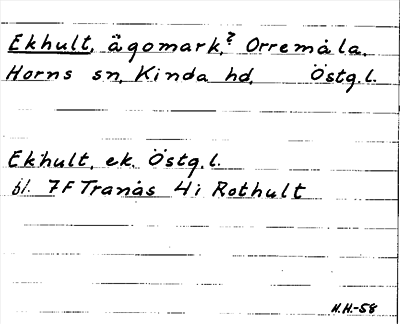 Ekhult, ägomark,? Orremåla.
Horns sn, Kinda hd, Östg.l.
Ekhult, ek. Östg.l.
bl. 7F Tranås 4i Rothult
H.H.-58